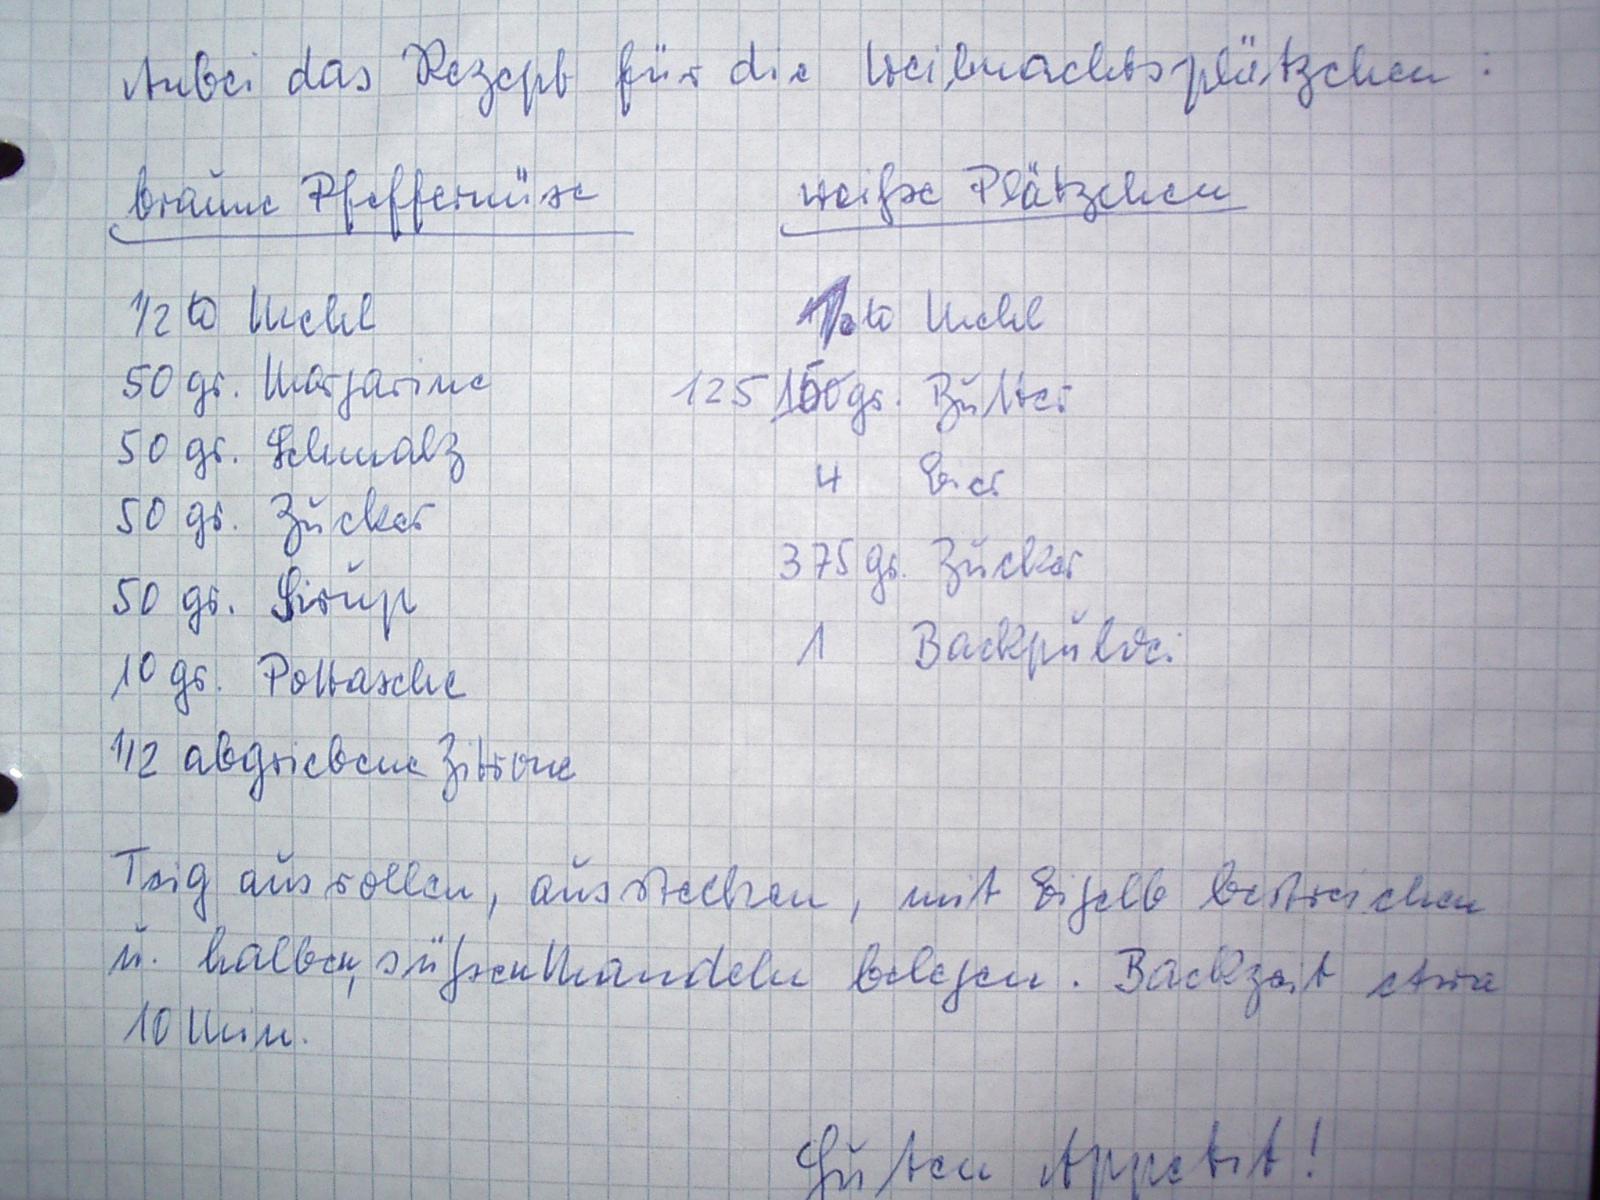 Anbei das Rezept für die Weihnachtsplätzchen:
braune Pfeffernüsse
weiße Plätzchen
1/2 ℔ Mehl
50 gr. Margarine
50 gr. Schmalz
50 gr. Zucker
50 gr. Sirup
10 gr. Pottasche
1/2 abgriebene Zitrone
1 ℔ Mehl
125 gr. Butter
4 Eier
375 gr. Zucker
1 Backpulver
Teig ausrollen, ausstechen, mit Eigelb bestreichen
u. halben, süßen Mandeln belegen. Backzeit etwa
10 Min.
Guten Appetit!